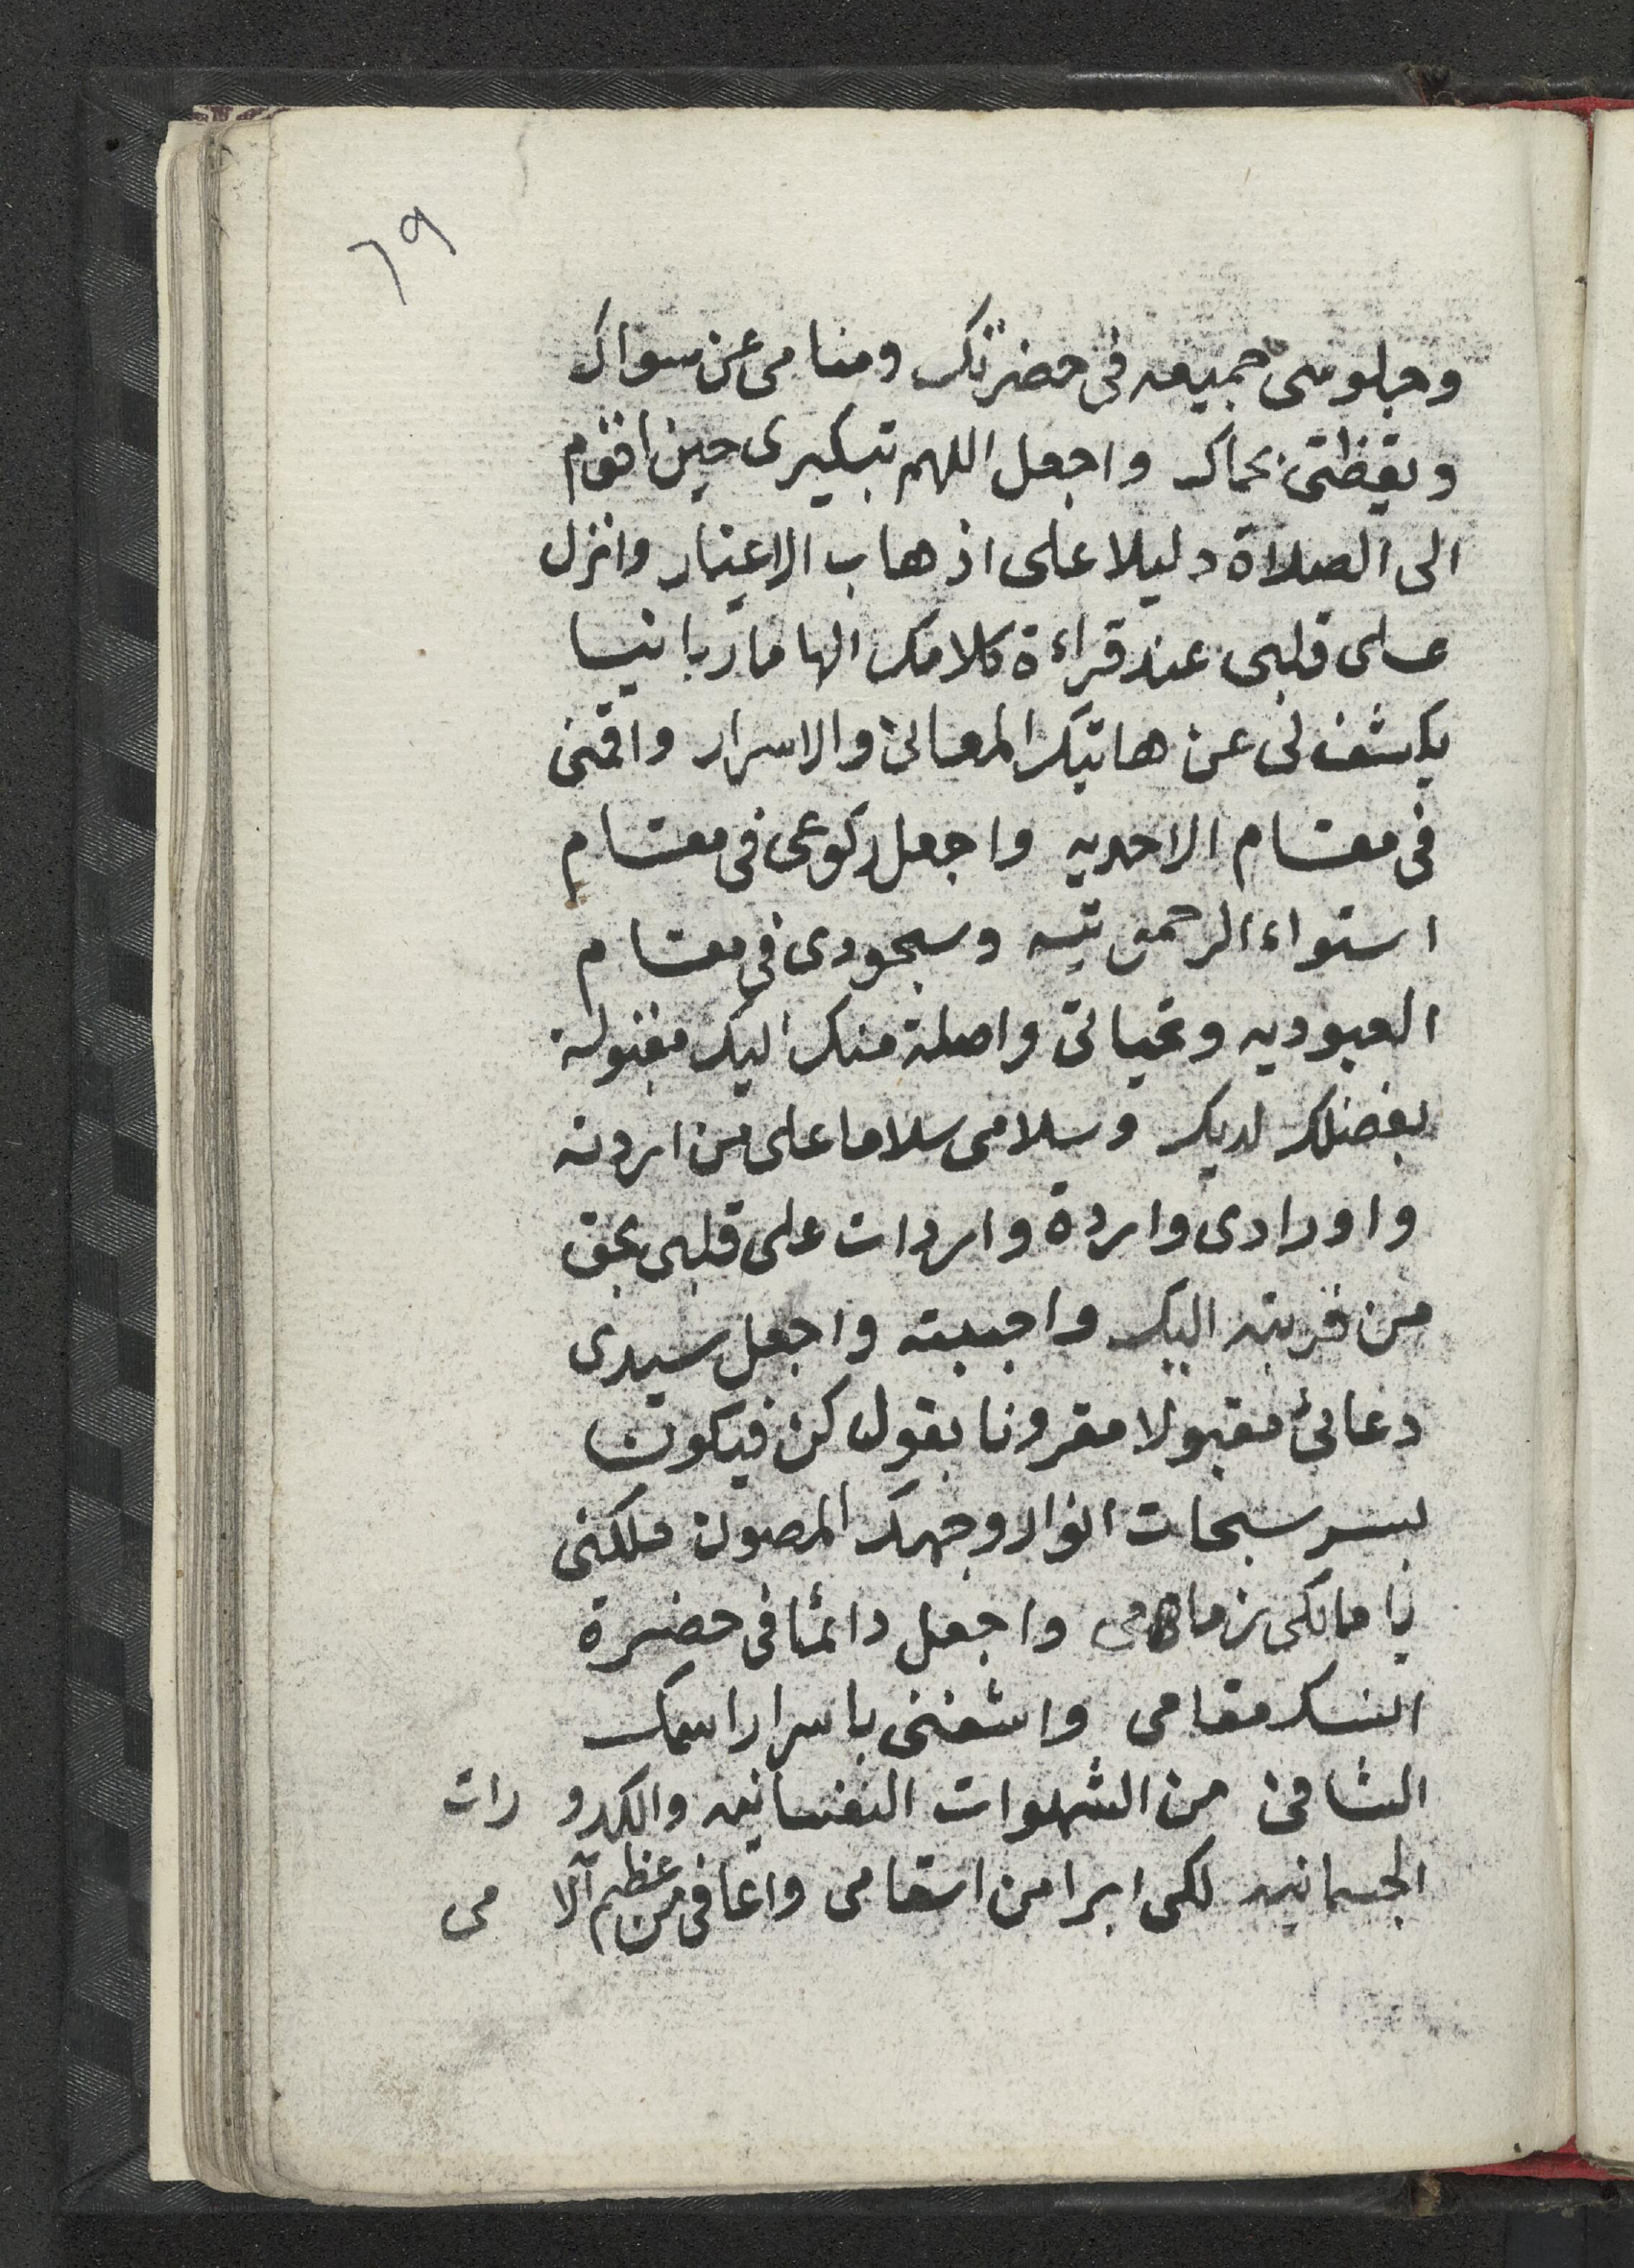 ٦٩
وجلوسى جميعه فى حضرتك ومنامى عن سواك
ويقظتى بحماك واجعل اللهم تبكيرى حين اقوم
الى الصلاة دليلا على اذهاب الاغيار وانزل
على قلبى عند قراءة كلامك الهاما ربانيا
يكشف لى عن هاتيك المعانى والاسرار واقمنى
فى مقام الاحديه واجعل ركوعى فى مقام
استواء الرحمن تيه وسجودى فى مقام
العبوديه وتحياتى واصلة منك اليك مقبولة
بفضلك لديك وسلامى سلاما على من اردته
واورادى واردة واردات على قلبى بحق
من قربته اليك واجبيته واجعل سيدى
دعائى مقبولا مقرونا بقول كن فيكون
بسر سبحات انوار وجهك المصون ملكنى
يا مالكى زمامى واجعل دائما فى حضرة
النسك مقامى واشفنى باسرار اسمك
الشافى من الشهوات النفسانيه والكدو رات
الجسمانيه لكى ابرا من اسقامى واعافى من عظيم آلا مى